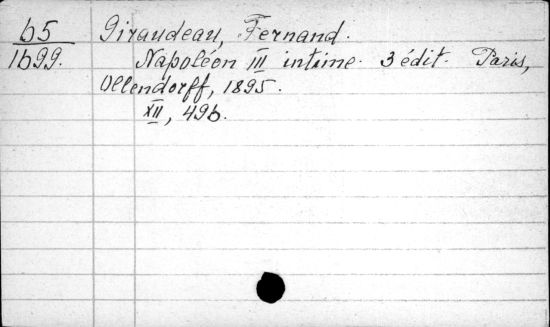 65 Giraudeau, Fernand.
1699. Napoléon III intime. 3 édit. Paris,
Ollendorff, 1895.
XII, 496.